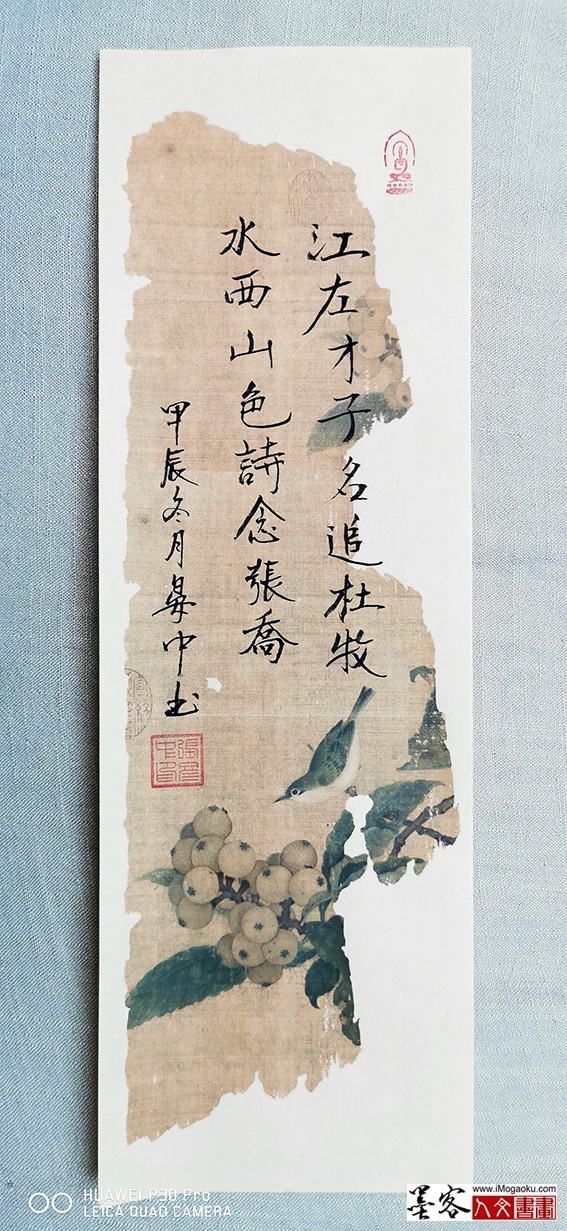 江左才子名追杜牧
水西山色詩念張喬
甲辰冬月中书
HUAWEI P30 Pro
LEICA QUAD CAMERA
墨客
www.iMogaoku.com
人文書畫